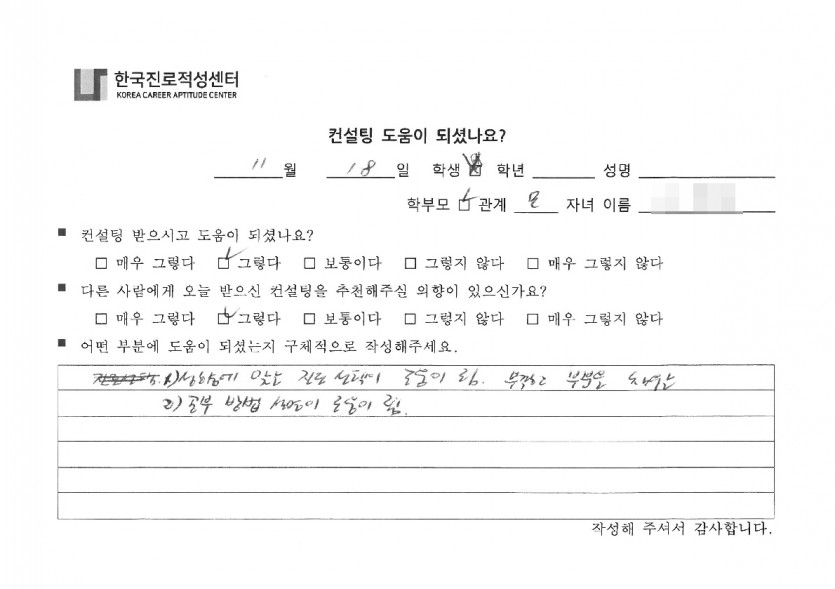 한국진로적성센터
KOREA CAREER APTITUDE CENTER
컨설팅 도움이 되셨나요?
11 월 18 일 학생 학년 성명
학부모 □ 관계 모 자녀 이름
■ 컨설팅 받으시고 도움이 되셨나요?
□ 매우 그렇다 □ 그렇다 □ 보통이다 □ 그렇지 않다 □ 매우 그렇지 않다
■ 다른 사람에게 오늘 받으신 컨설팅을 추천해주실 의향이 있으신가요?
□ 매우 그렇다 □ 그렇다 □ 보통이다 □ 그렇지 않다 □ 매우 그렇지 않다
■ 어떤 부분에 도움이 되셨는지 구체적으로 작성해주세요.
1) 성향에 맞는 진로 선택이 도움이 됨. 부족한 부분을 채우는
2) 공부 방법 설명이 도움이 됨.
작성해 주셔서 감사합니다.